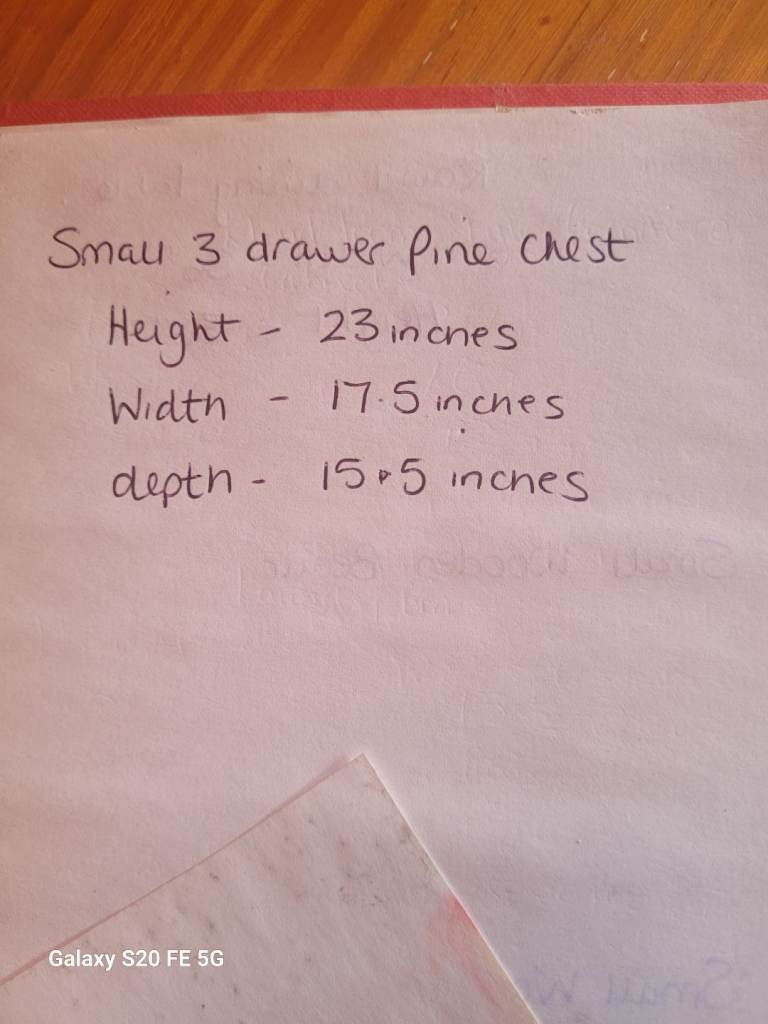 Small 3 drawer Pine Chest
Height - 23 inches
Width - 17.5 inches
depth - 15.5 inches
Small Wooden
Small
Galaxy S20 FE 5G